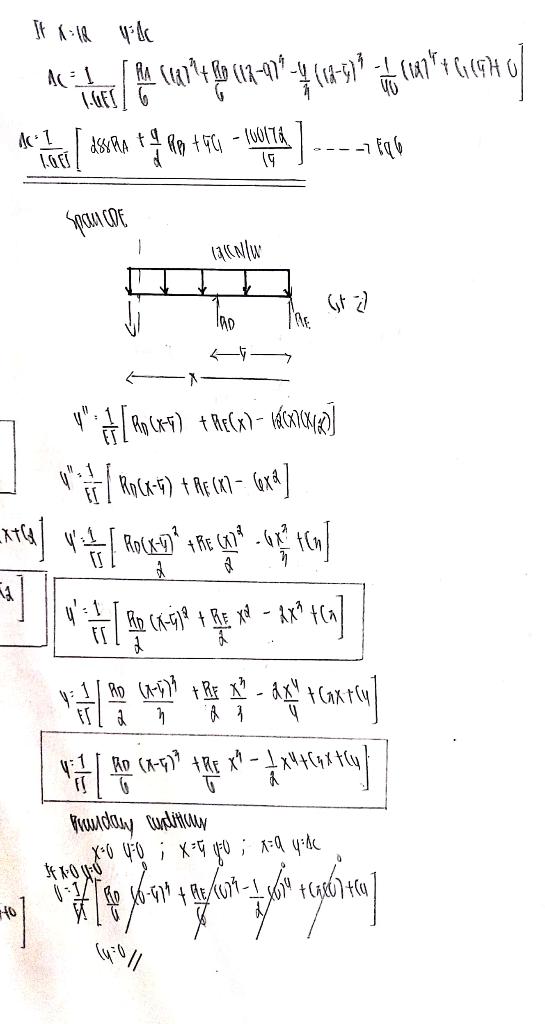 If x=12 y=Δc
Δc = 1/1.6EI [ RA/6 (12)³ + RB/6 (12-9)³ - 4/3 (12-5)³ - 1/40 (12)⁵ + C1(5) + 0 ]
Δc = 1/1.6EI [ 288RA + 9/2 RB + 5C1 - 100172/15 ] ----→ Eq 6
Span CDE
12kN/m
RD
RE
5
x
y" = 1/EI [ RD(x-5) + RE(x) - 12(x)(x/2) ]
y" = 1/EI [ RD(x-5) + RE(x) - 6x2 ]
x+C2] y' = 1/EI [ RD(x-5)²/2 + RE (x)²/2 - 6x³/3 + C3 ]
y' = 1/EI [ RD/2 (x-5)² + RE/2 x2 - 2x³ + C3 ]
y = 1/EI [ RD/2 (x-5)³/3 + RE/2 x³/3 - 2x⁴/4 + C3x + C4 ]
y = 1/EI [ RD/6 (x-5)³ + RE/6 x³ - 1/2 x4 + C3x + C4 ]
Boundary conditions
x=0 y=0 ; x=5 y=0 ; x=9 y=Δc
If x=0 y=0
0 = 1/EI [ RD/6 (0-5)³ + RE/6 (0)³ - 1/2 (0)⁴ + C3(0) + C4 ]
C4=0 //